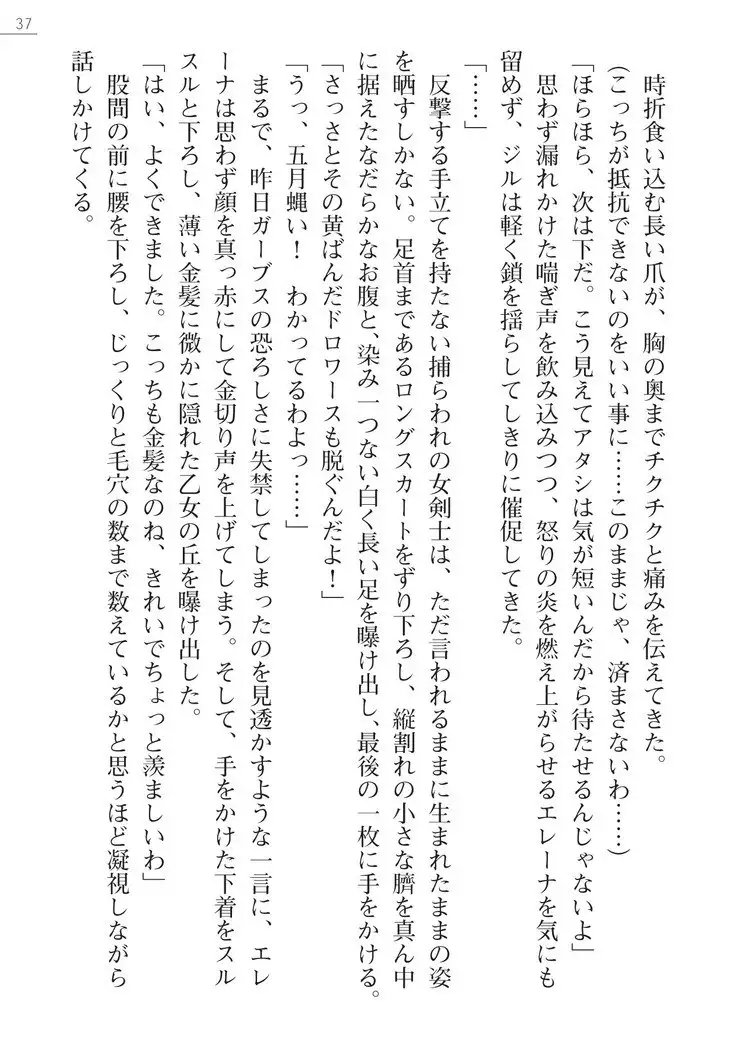 37
時折食い込む長い爪が、胸の奥までチクチクと痛みを伝えてきた。
(こっちが抵抗できないのをいい事に……このままじゃ、済まさないわ……)
「ほらほら、次は下だ。こう見えてアタシは気が短いんだから待たせるんじゃないよ」
思わず漏れかけた喘ぎ声を飲み込みつつ、怒りの炎を燃え上がらせるエレーナを気にも
留めず、ジルは軽く鎖を揺らしてしきりに催促してきた。
「……」
反撃する手立てを持たない捕らわれの女剣士は、ただ言われるままに生まれたままの姿
を晒すしかない。足首まであるロングスカートをずり下ろし、縦割れの小さな臍を真ん中
に据えたなだらかなお腹と、染み一つない白く長い足を曝け出し、最後の一枚に手をかける。
「さっさとその黄ばんだドロワースも脱ぐんだよ!」
「うっ、五月蝿い! わかってるわよっ……」
まるで、昨日ガーブスの恐ろしさに失禁してしまったのを見透かすような一言に、エレ
ーナは思わず顔を真っ赤にして金切り声を上げてしまう。そして、手をかけた下着をスル
スルと下ろし、薄い金髪に微かに隠れた乙女の丘を曝け出した。
「はい、よくできました。こっちも金髪なのね、きれいでちょっと羨ましいわ」
股間の前に腰を下ろし、じっくりと毛穴の数まで数えているかと思うほど凝視しながら
話しかけてくる。